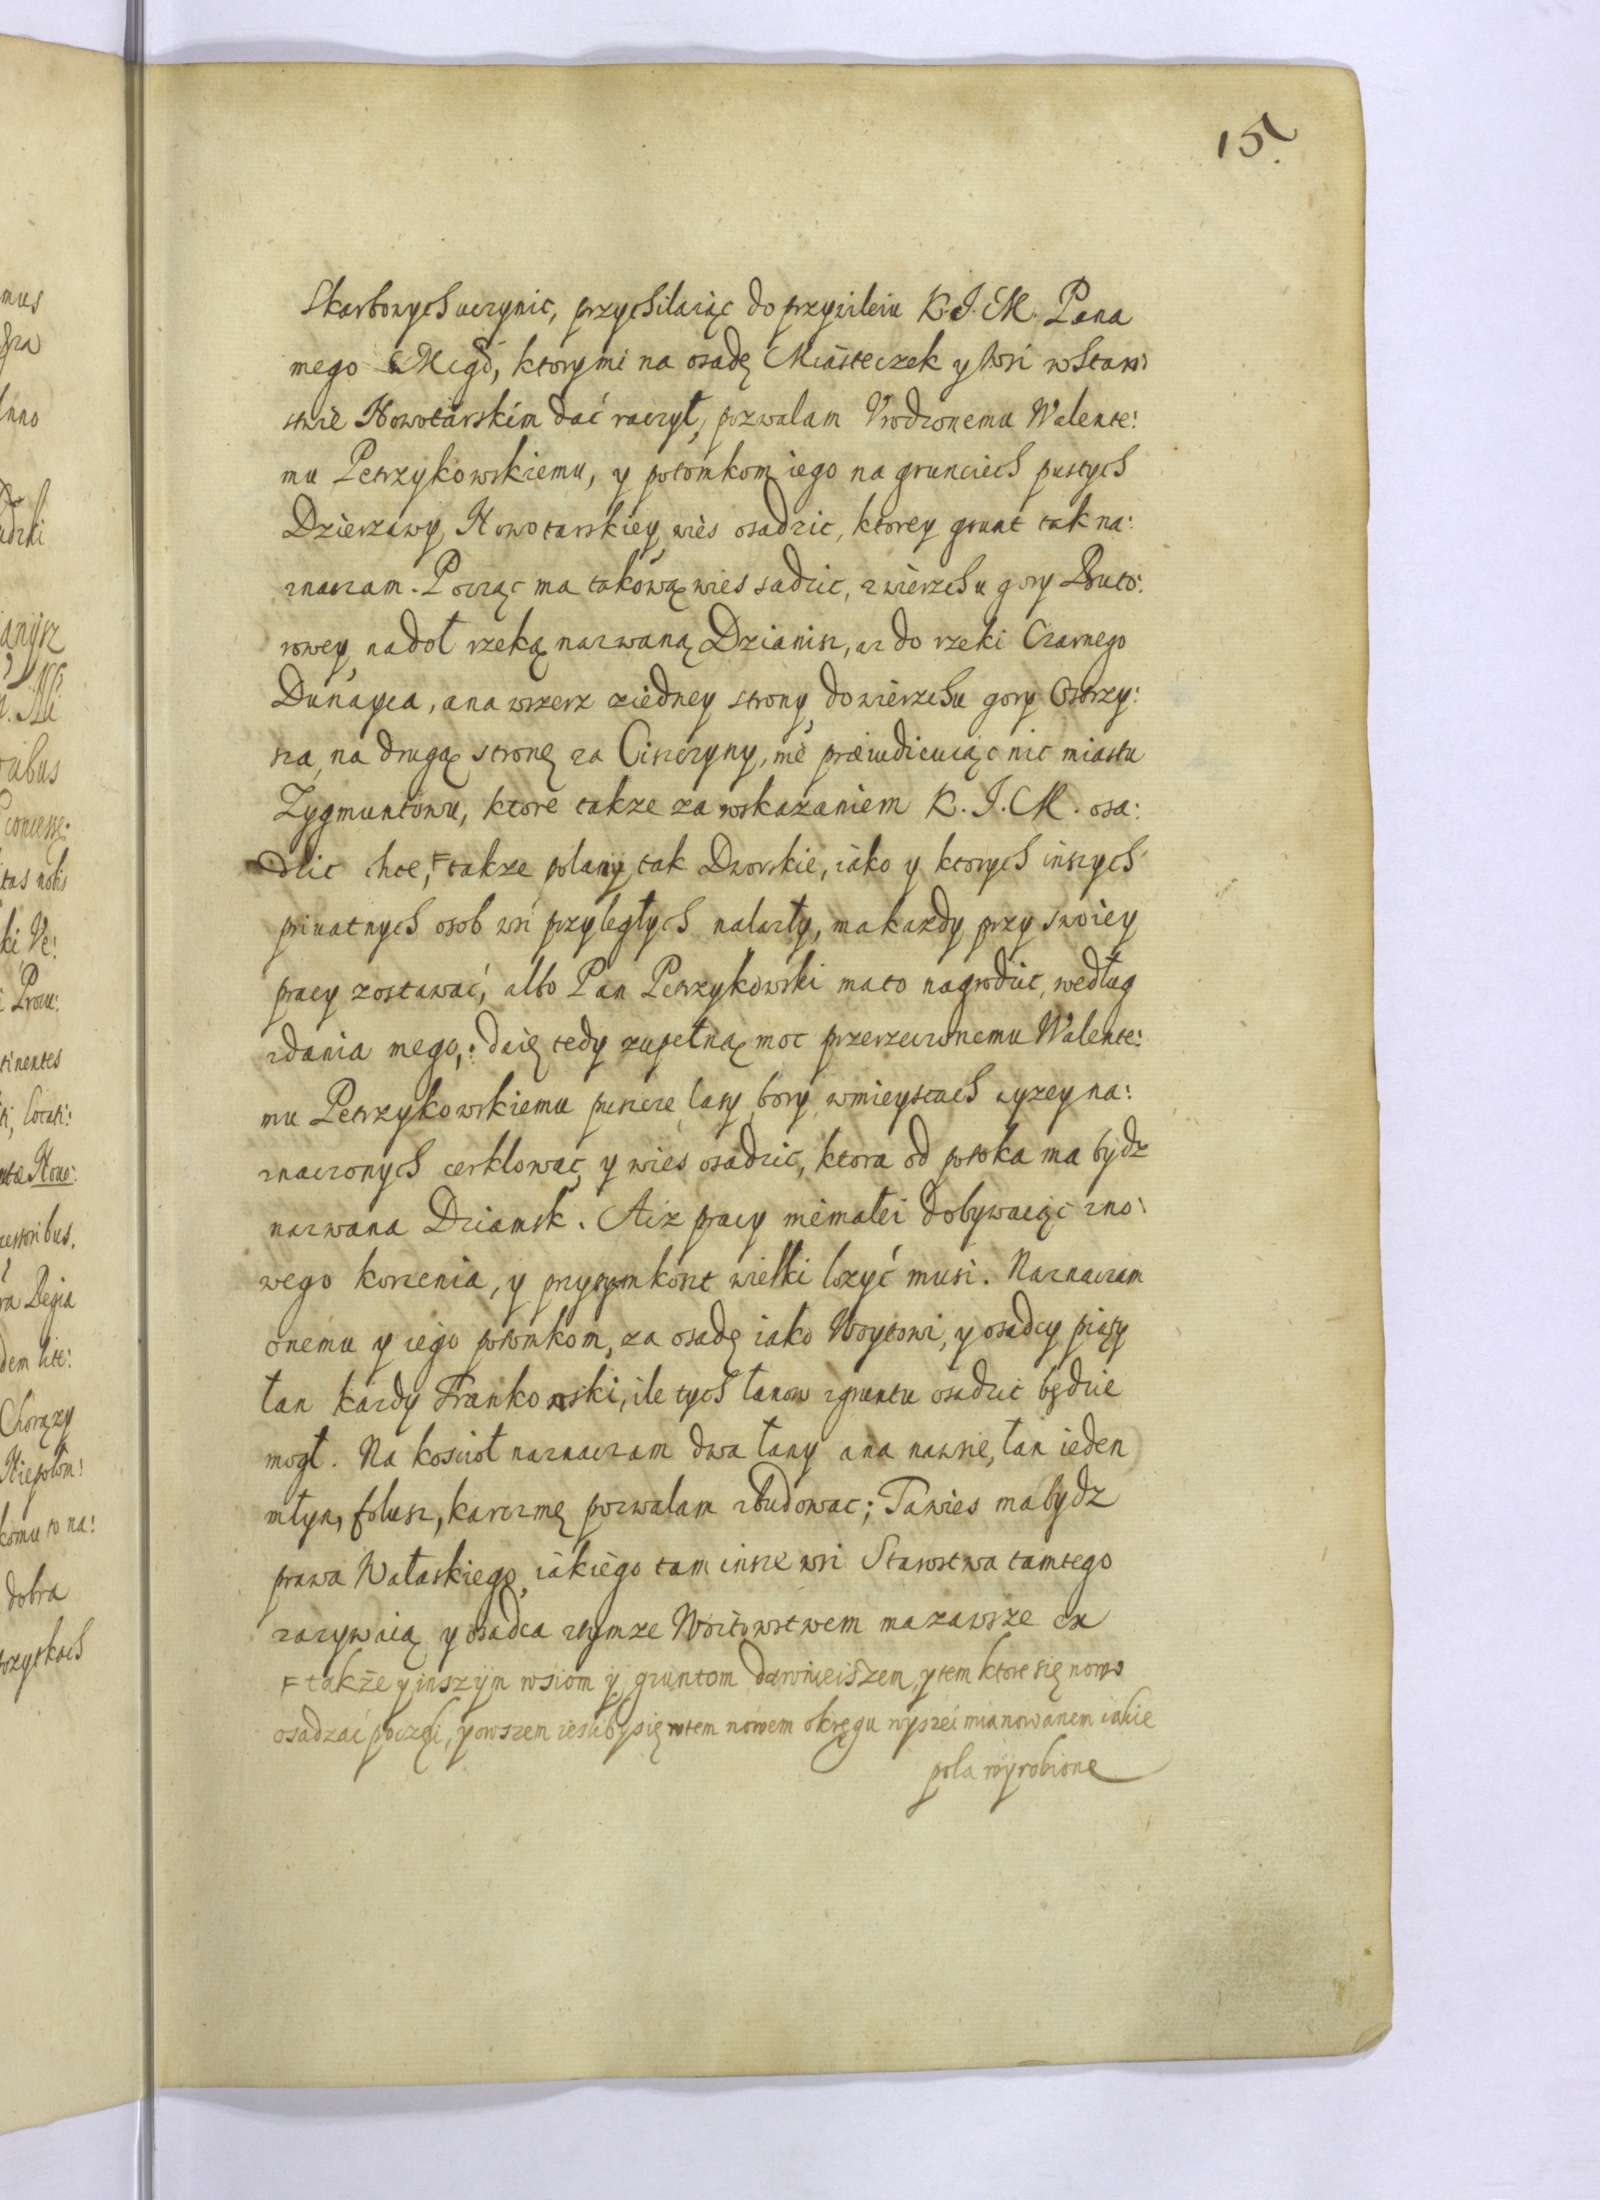 151
Skarbowych uczynic, przychilaiąc do przywileiu K. J. M. Pana
mego Mcgo, ktory mi na osadę Miasteczek y Wsi w Staro:
stwie Nowotarskim dać raczył, pozwalam Vrodzonemu Walente:
mu Petrzykowskiemu, y potomkom iego na grunciech pustych
Dzierzawy Nowotarskiey wies osadzic, ktorey grunt tak na:
znaczam. Począc ma takową wies sadzic, z wierzchu gory Buto:
rowey na doł rzeką nazwaną Dzianisz, az do rzeki Czarnego
Dunayca, a na wszerz z iedney strony do wierzchu gory Ostrzy:
sza, na drugą stronę za Ciszczyny, nie præiudicuiąc nic miastu
Zygmuntowu, ktore takze za wskazaniem K. J. M. osa:
dzic chcę, F takze polany tak Dworskie, iako y ktorych inszych
priuatnych osob wsi przyległych nalazły, ma kazdy przy swoiey
pracy zostawać, albo Pan Petrzykowski ma to nagrodzic, według
zdania mego,: daię tedy zupełną moc przerzeczonemu Walente:
mu Petrzykowskiemu puszcze, lasy, bory w mieyscach wyzey na:
znaczonych cerklowac, y wies osadzic, ktora od potoka ma bydz
nazwana Dziansk. A iz pracy nie małei dobywaiąc z no:
wego korzenia, y przy tym koszt wielki lozyć musi. Naznaczam
onemu y iego potomkom, za osadę iako Woytowi, y osadcy piąty
łan kazdy Frankowski, ile tych łanow z gruntu osadzic będzie
mogł. Na koscioł naznaczam dwa łany a na nawsie, łan ieden
młyn, folusz, karczmę pozwalam zbudowac; Ta wies ma bydz
prawa Wałaskiego, iakiego tam insze wsi Starostwa tamtego
zazywaią y osadca z tymze Woitowstwem ma zawsze ex
F także y inszym wsiom y gruntom dawnieiszem, y tem ktore się nowo
osadzać poczęli, y owszem iesliby się w tem nowem okręgu wyszei mianowanem iakie
pola wyrobione